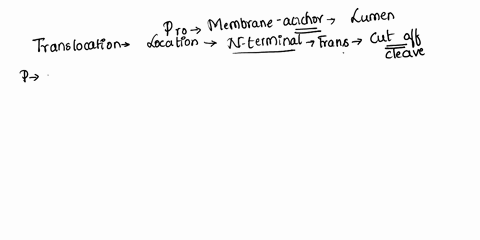 Pro → Membrane-anchor → Lumen
Translocation → Location → N-terminal → Trans → Cut off
cleave
P →